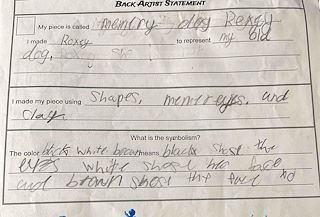 BACK ARTIST STATEMENT
My piece is called memtry dog Rexey
I made Roxey to represent my old
dog,
I made my piece using shapes, memereyes, and
clay
What is the symbolism?
The color black white brown means black shose the
eyes white shose her face
and brown shose the face